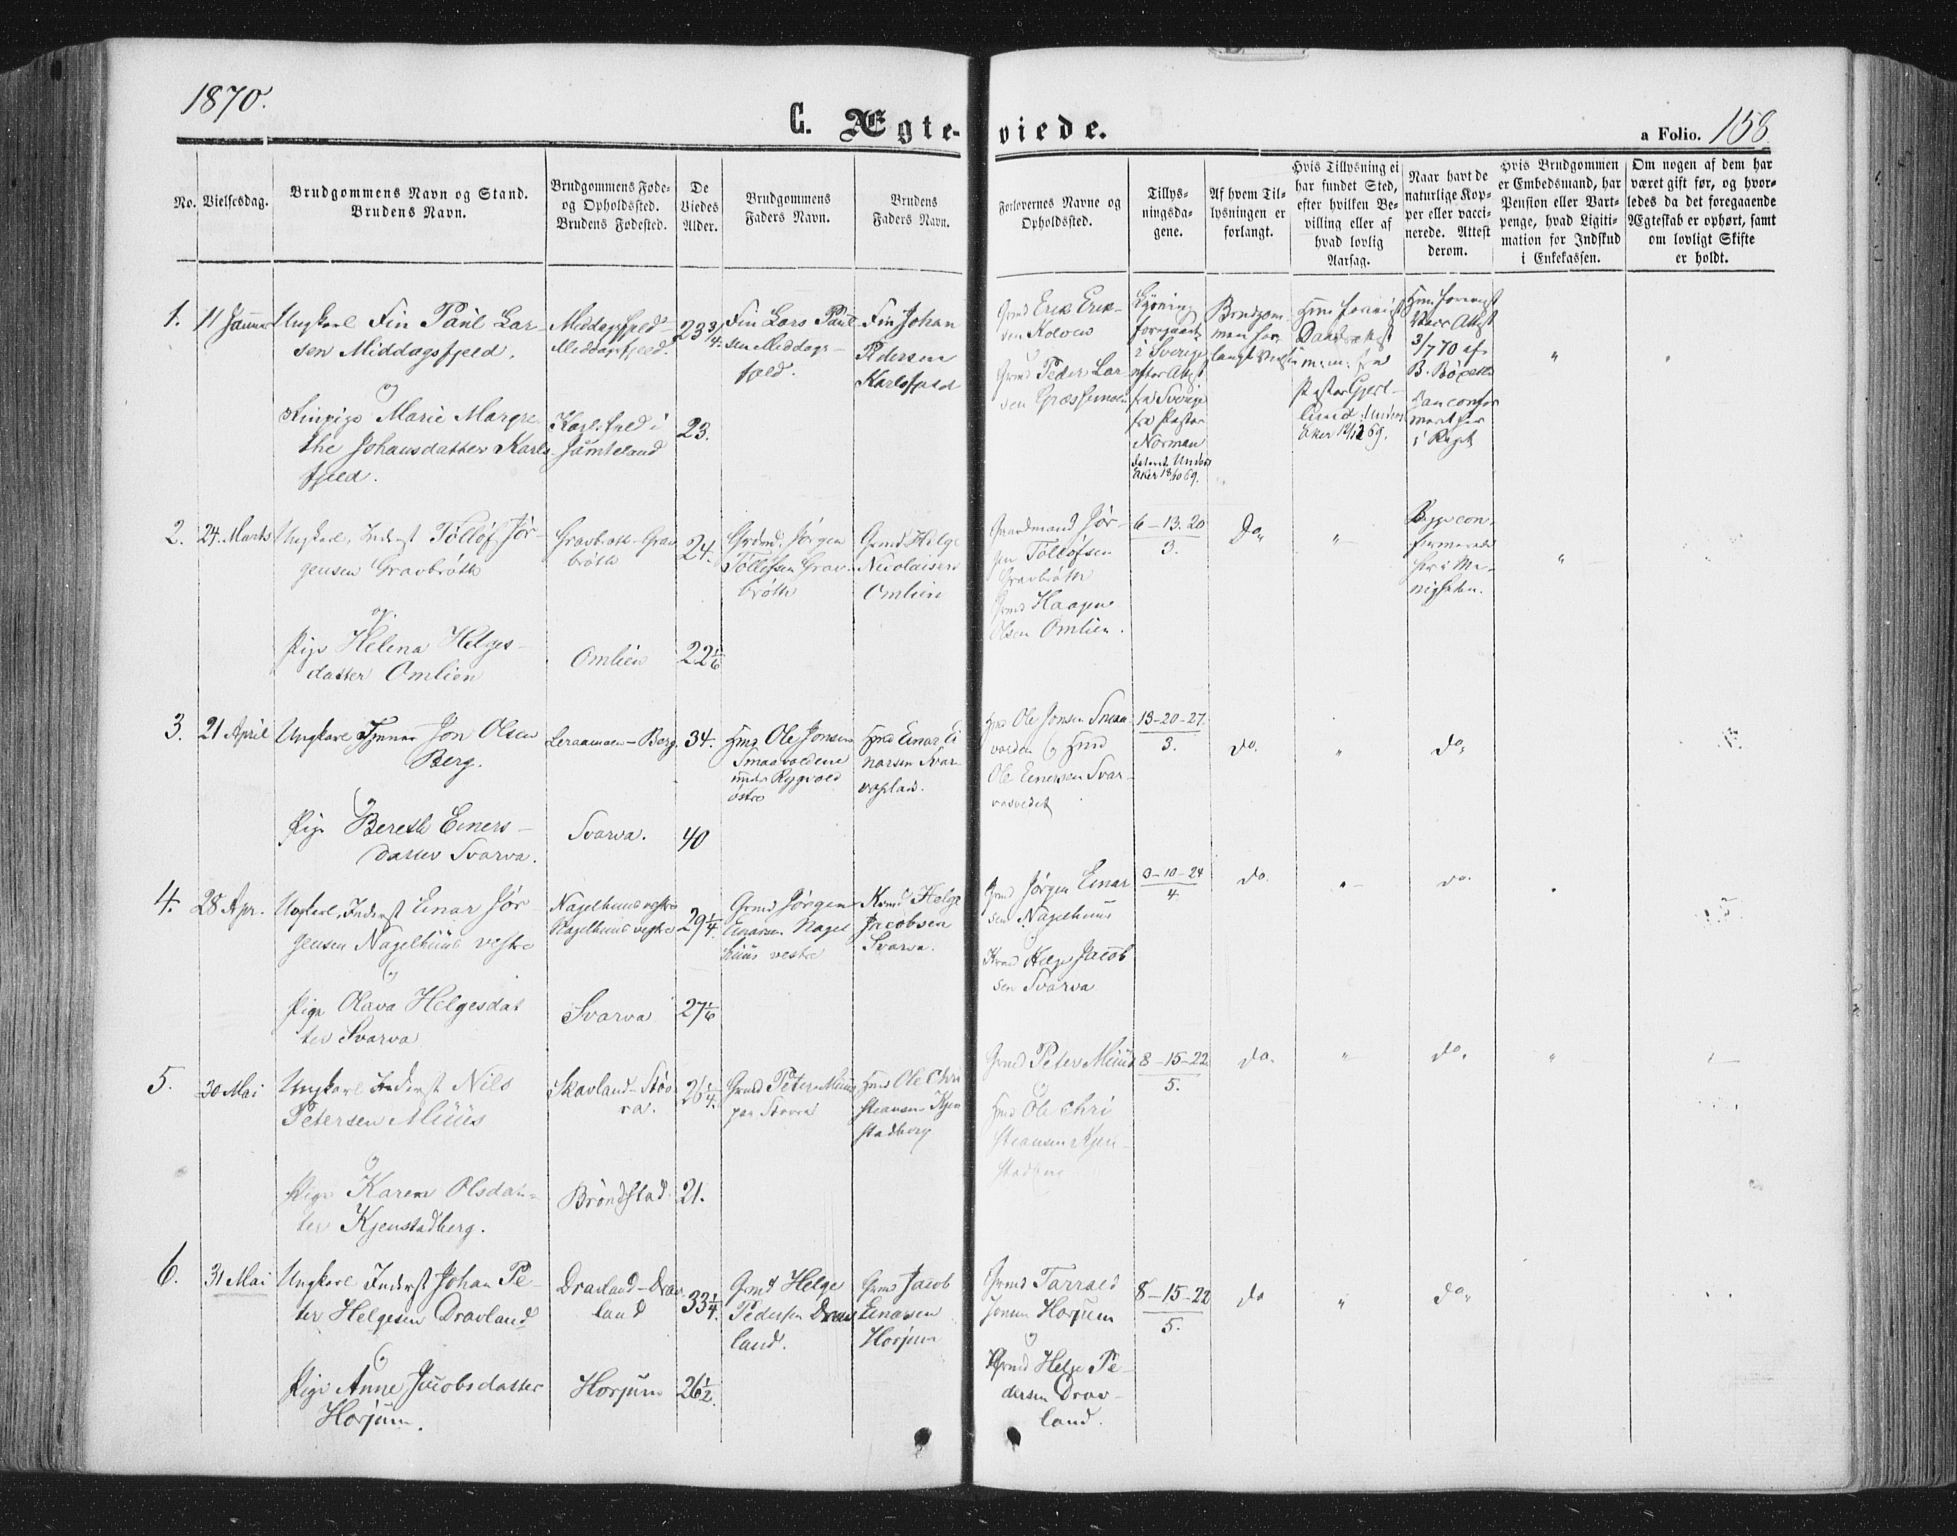 1870.
C. Ægte-viede.
a Folio. 158.
No.
Vielsesdag.
Brudgommens Navn og Stand.
Brudens Navn.
Brudgommens Føde-
og Opholdssted.
Brudens Fødested.
De
Viedes
Alder.
Brudgommens
Faders Navn.
Brudens
Faders Navn.
Forlovernes Navne og
Opholdssted.
Tillys-
ningsda-
gene.
Af hvem Til-
lysningen er
forlangt.
Hvis Tillysning ei
har fundet Sted,
efter hvilken Be-
villing eller af
hvad lovlig
Aarsag.
Naar havt de
naturlige Kop-
per eller vacci-
nerede. Attest
derom.
Hvis Brudgommen
er Embedsmand, har
Pension eller Vart-
penge, hvad Ligiti-
mation for Indskud
i Enkekassen.
Om nogen af dem har
været gift før, og hvor-
ledes da det foregaaende
Ægteskab er ophørt, samt
om lovligt Skifte
er holdt.
1.
11 Januar
Ungkarl Fin Paul Lar-
sen Middagsfjeld.
og
Finpige Marie Magre-
the Johansdatter Karls
fjeld.
Middagsfjeld-
Middagsfjeld.
Karlsfjeld i
Jämteland
23 3/4.
23.
Fin Lars Paul
sen Middags-
fjeld.
Fin Johan
Pedersen
Karlsfjeld
Grmd Erik Erik-
sen
Grmd Peder Lar-
sen
Lysning
foregaaet
i Sverige
efter Attest
fra Sverige
fra Pastor
Norman
Under
aker 18/10 69.
Brudgom-
men for
langt
Pastor
aker 12/12 69.
3/1 70 af
i Riget
2.
24. Marts
Ungkarl, Inderst Tollof Jør-
gensen Gravbrøth
og
Pige Helena Helges-
datter Omlien
Gravbroth-Grav
brøth
Omlien
24.
22 1/6
Grdmd. Jørgen
Tollefsen Grav-
brøth
Grmd Helge
Nicolaisen
Omlien
Gaardmand Jør-
gen Tollofsen
Gravbrøth
Grmd Haagen
Olsen Omlien.
6-13.20
3.
Do.
"
Begge con-
firmerede
her i Me-
nigheden.
"
3.
21 April
Ungkarl Tjener Jon Olsen
Berg.
og
Pige Bereth Einers-
datter Svarva.
Leraamoen-Berg
Svarva.
34.
40
Hmd Ole Jonsen
Smaavoldene
under Rygvold
østre
Hmd Einar Ei
narsen Svar-
vaplad.
Hmd Ole Jonsen Smaa-
volden og Hmd
Ole Einersen Svar-
13-20-27.
3.
do.
"
do.
4.
28 Apr.
Ungkarl, Inderst Einar Jør-
gensen Nagelhuus vestre
og
Pige Olava Helgesdat
ter Svarva
Nagelhuus vestre
Nagelhuus vestre
Svarva
29 1/4.
27 1/6
Grmd Jørgen
Einarsen Nagel
huus vestre
Grmd Helge
Jacobsen
Svarva.
Grmd Jørgen Einar
sen Nagelhuus
og
Grmd Helge Jacob
sen Svarva
3-10-24
4.
do.
"
do.
5.
30 Mai
Ungkarl Inderst Nils
Petersen Müüs
og
Pige Karen Olsdat-
ter Kjenstadberg.
Skavland-Stov
ra.
Brøndstad
26 1/4.
21.
Grmd Peter Müüs
paa Stovra
Hmd Ole Chri
stiansen Kjen
stadberg
Grmd Peter Müüs
og
Hmd Ole Chri
stiansen Kjen-
stadberg
8-15-22
5.
do.
"
do.
"
6.
31 Mai
Ungkarl Inderst Johan Pe-
ter Helgesen Dravland
og
Pige Anne Jacobsdatter
Horjum.
Dravland-Drav
land
Horjum
33 1/4.
26 1/2.
Grmd Helge
Pedersen Drav
land.
Grmd Jacob
Einarsen
Horjum
Grmd Tarrald
Jonsen Horjum
og
Grmd Helge Pe-
dersen Drav-
land.
8-15-22
5.
do
"
do.